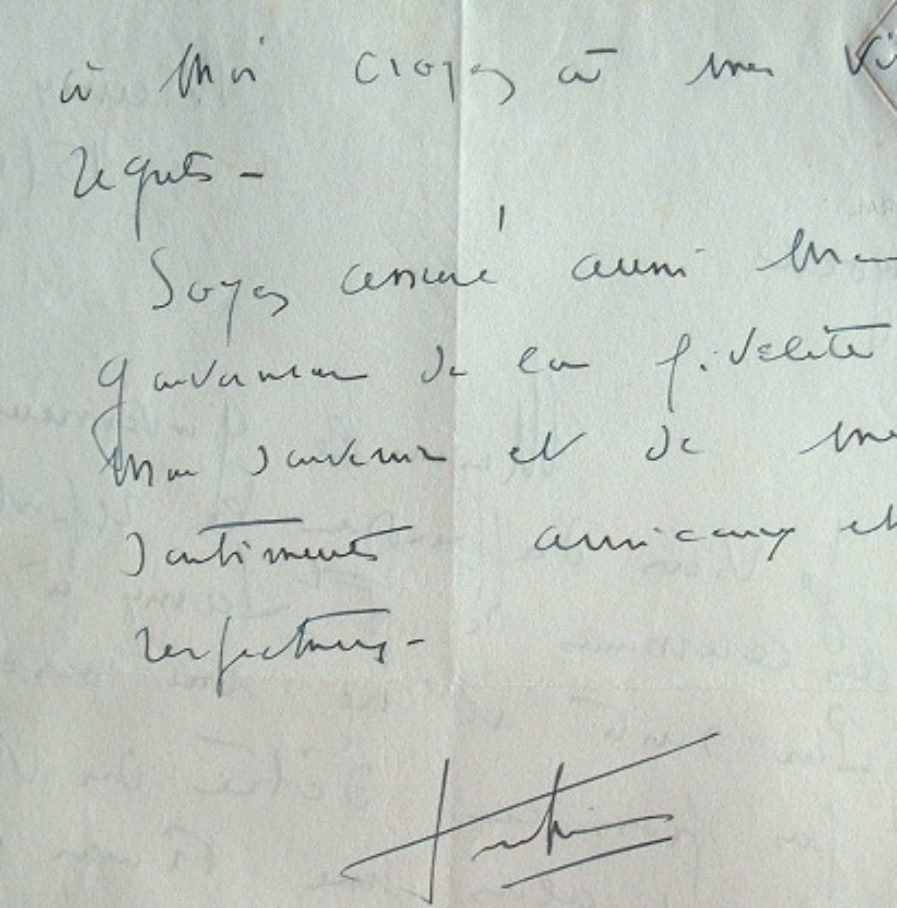 à moi croyez à mes vi
regrets -
Soyez assuré aussi Mon
Gouverneur de la fidélité
mon souvenir et de me
sentiments amicaux et
respectueux -